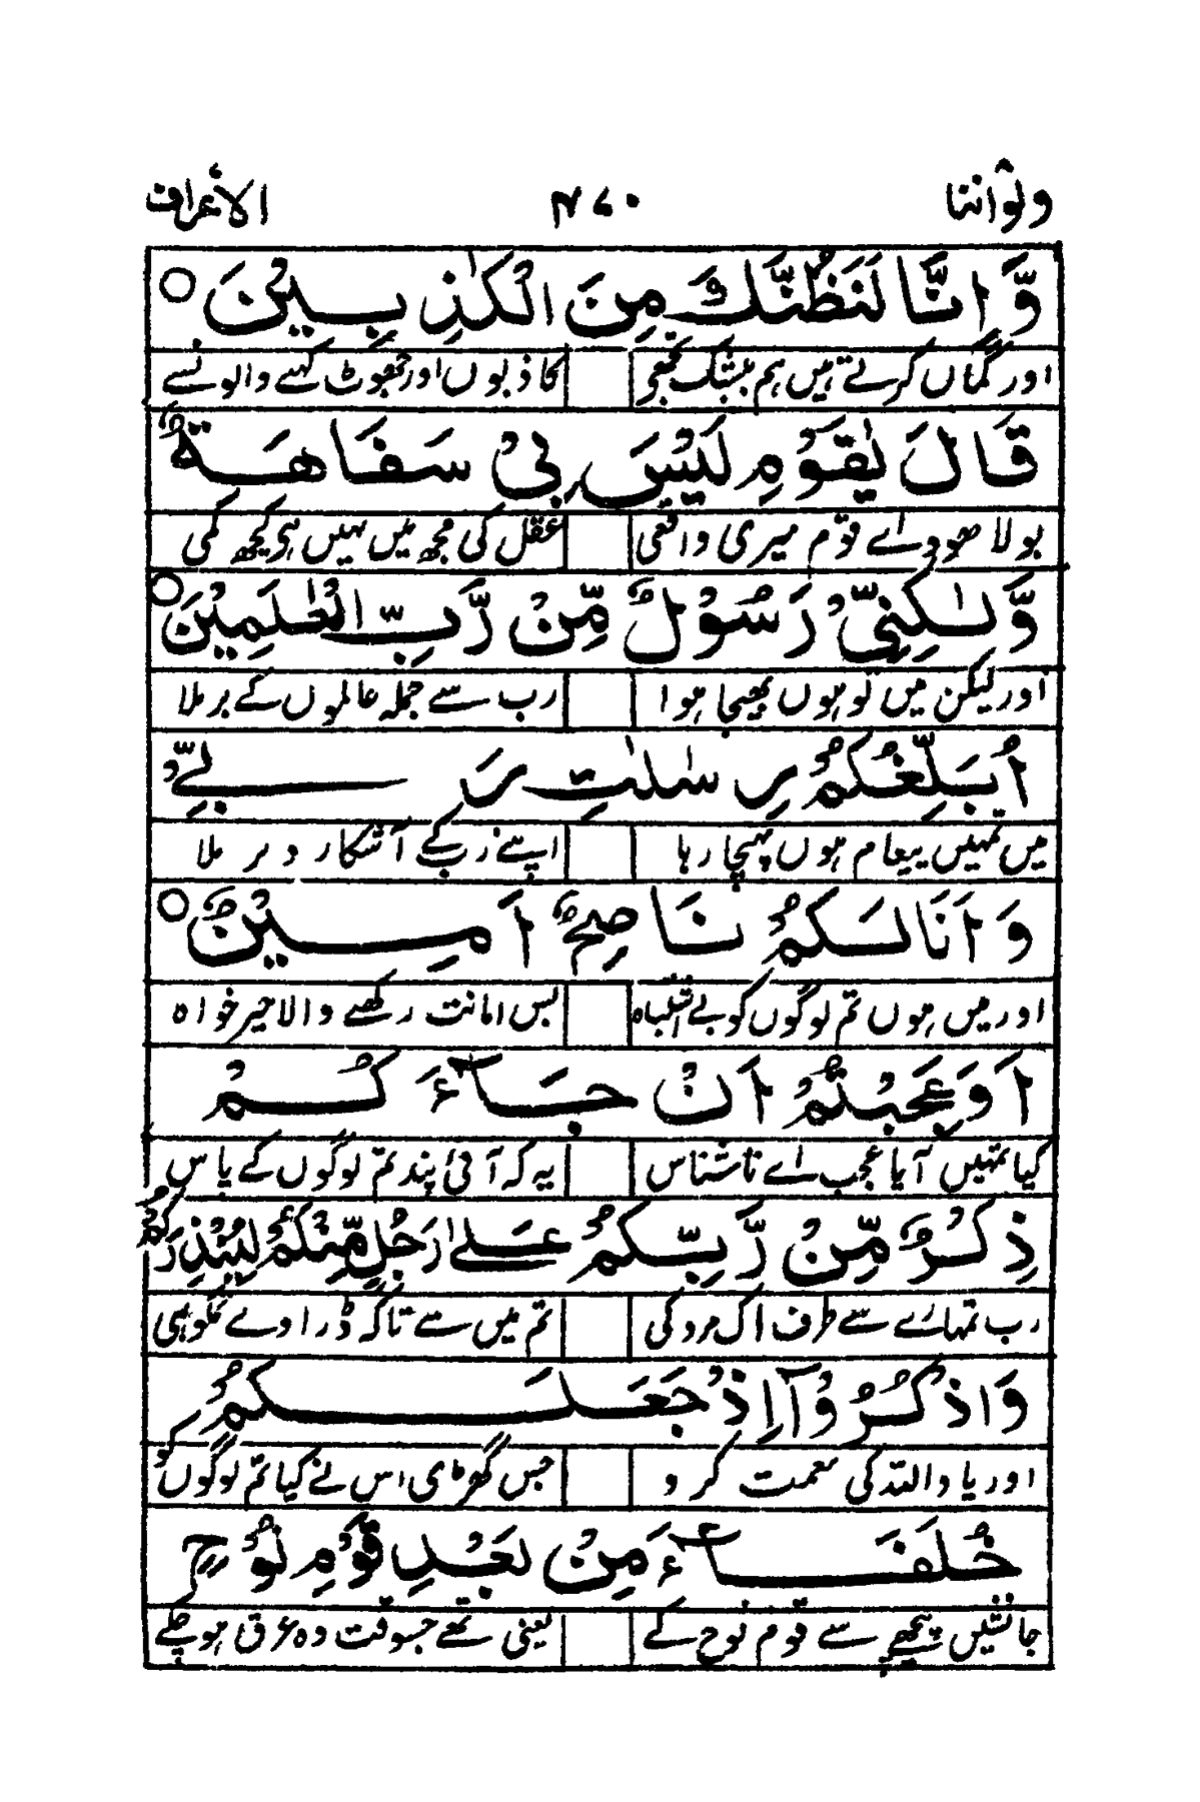 ولو اننا ۴۷۰ الاعراف
وَّاِنَّا لَنَظُنُّكَ مِنَ الْكٰذِبِيْنَ ○
اور گماں کرتے ہیں ہم بیشک تجھی کاذبوں اور جھوٹ کہنے والو نسے
قَالَ يٰقَوْمِ لَيْسَ بِيْ سَفَاهَةٌ
بولا ھود اے قوم میری واقعی عقل کی مجھ میں نہیں ہی کچھ کمی
وَّلٰكِنِّيْ رَسُوْلٌ مِّنْ رَّبِّ الْعٰلَمِيْنَ ○
اور لیکن میں تو ہوں بھیجا ہوا رب سے جملہ عالموں کے برملا
اُبَلِّغُكُمْ رِسٰلٰتِ رَبِّيْ
میں تمہیں پیغام ہوں پہنچا رہا اپنے رب کے آشکار و بر ملا
وَاَنَا لَكُمْ نَاصِحٌ اَمِيْنٌ ○
اور میں ہوں تم لوگوں کو بے اشتباہ بس امانت رکھنے والا خیر خواہ
اَوَعَجِبْتُمْ اَنْ جَآءَكُمْ
کیا تمہیں آیا عجب اے ناشناس یہ کہ آئی پند تم لوگوں کے پاس
ذِكْرٌ مِّنْ رَّبِّكُمْ عَلٰى رَجُلٍ مِّنْكُمْ لِيُنْذِرَكُمْ
رب تمہارے سے طرف اک مرد کی تم میں سے تاکہ ڈراوے تمکو ہی
وَاذْكُرُوْٓا اِذْ جَعَلَكُمْ
اور یاد اللہ کی نعمت کرو جس گھڑی اس نے کیا تم لوگوں کو
خُلَفَآءَ مِنْۢ بَعْدِ قَوْمِ نُوْحٍ
جانشیں پیچھے سے قوم نوح کے یعنی تھے جسوقت وہ غرق ہو چلے